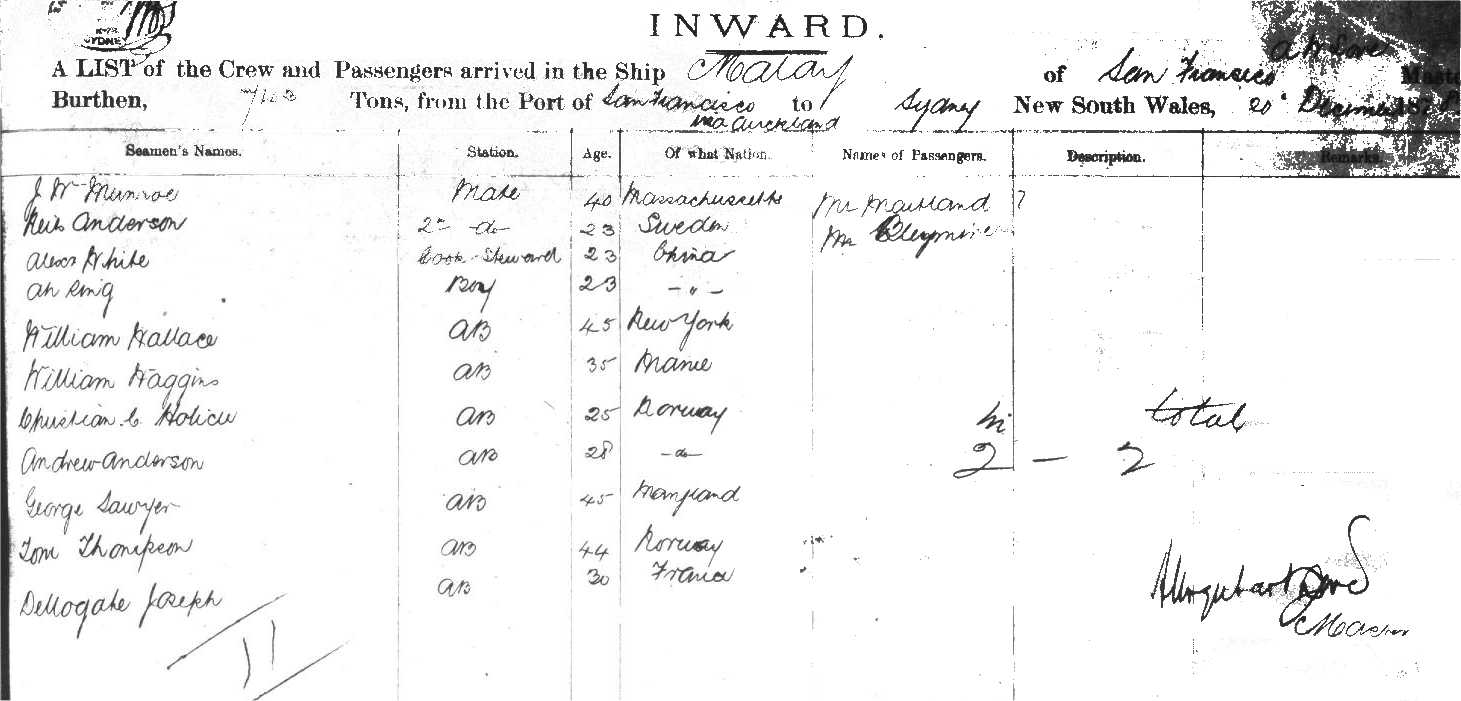 SYDNEY
INWARD.
A H Dove
A LIST of the Crew and Passengers arrived in the Ship Malay of San Francisco Master
Burthen, Tons, from the Port of San Francisco to Sydney New South Wales, 20 December 187
via Auckland
Seamen's Names. Station. Age. Of what Nation. Names of Passengers. Description. Remarks.
J W Munroe Mate 40 Massachussetts Mr Maitland
Neils Anderson 2nd do 23 Sweden Mr
Alexr White Cook Steward 23 China
Ah Ring Boy 23 - " -
William Wallace AB 45 New York
William Haggins AB 35 Maine
Christian C. AB 25 Norway total
Andrew Anderson AB 28 - do - 2 - 2
George Sawyer AB 45 Maryland
Tom Thompson AB 44 Norway
Dellogate Joseph AB 30 France
A Urquhart Dove
Master
11